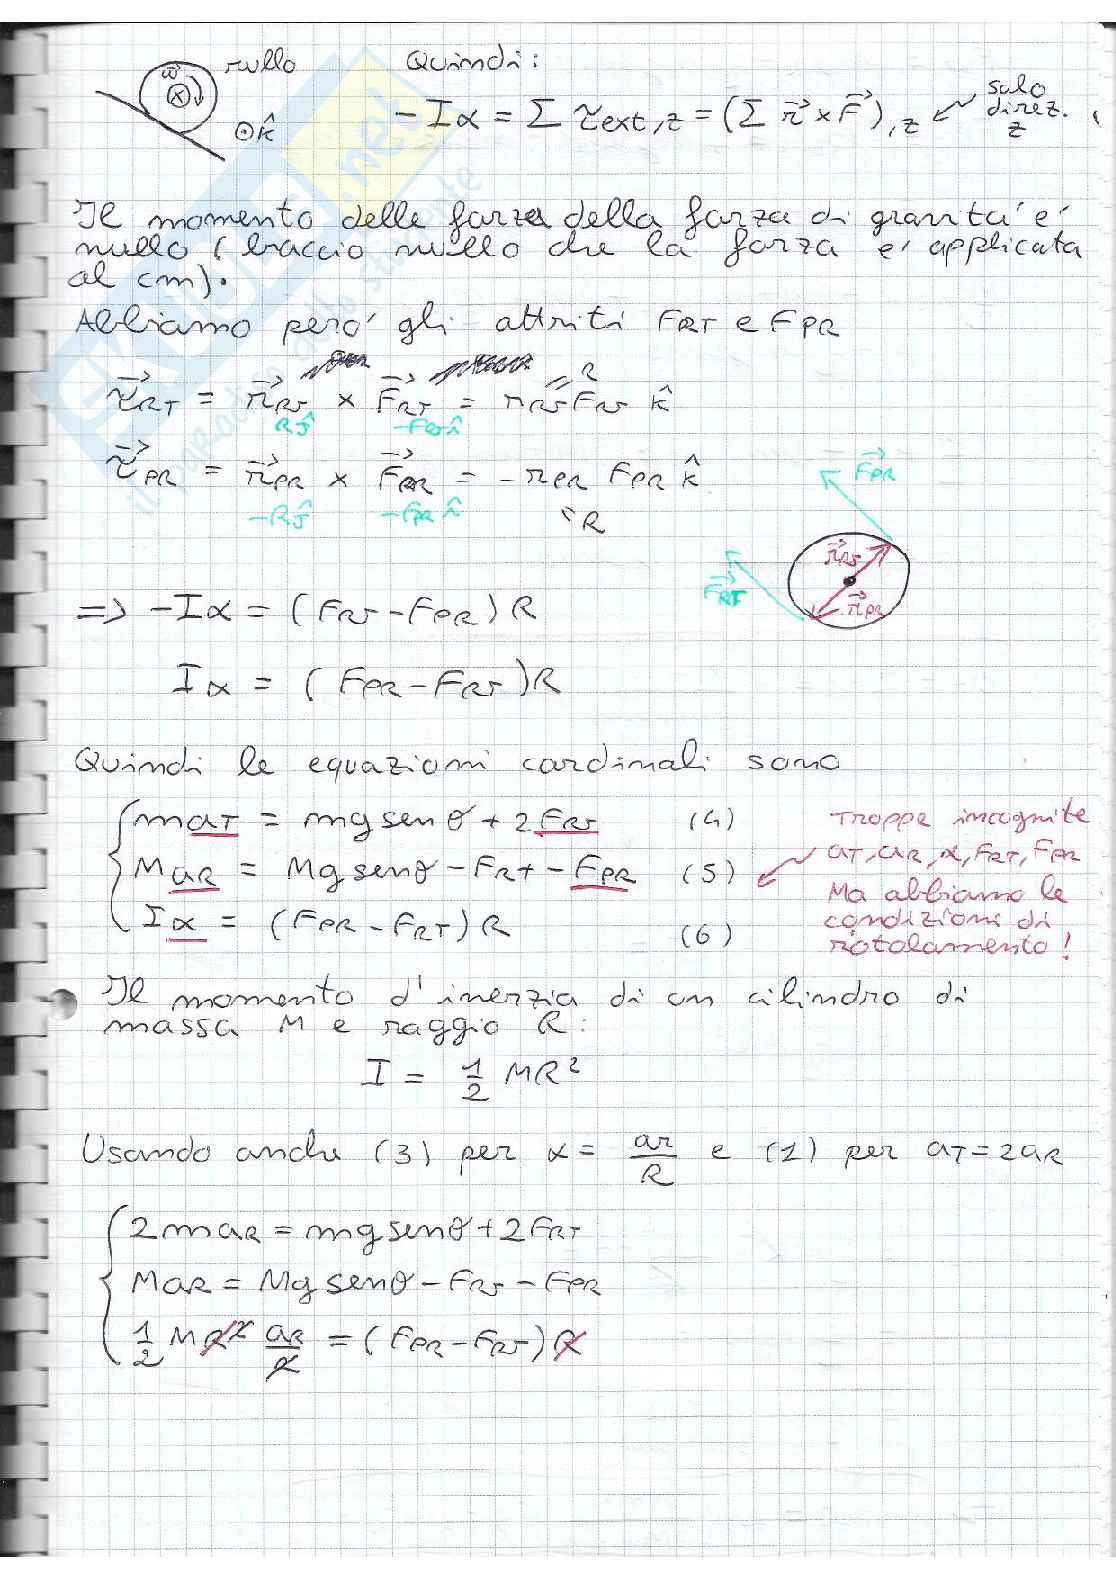 rullo
Quindi:
ω⃗
⊙k̂
-Iα = Σ τext,z = (Σ r⃗ x F⃗),z
solo
direz.
z
Il momento delle forze della forza di gravita' e'
nullo (braccio nullo che la forza e' applicata
al cm).
Abbiamo pero' gli attriti FRT e FPR
τ⃗RT = r⃗RT x F⃗RT = rRT FRT k̂
= R
Rĵ -FRT î
τ⃗PR = r⃗PR x F⃗PR = - rPR FPR k̂
-Rĵ -FPR î
= R
F⃗PR
F⃗RT
r⃗RT
r⃗PR
=> -Iα = (FRT - FPR) R
Iα = (FPR - FRT) R
Quindi le equazioni cardinali sono
maT = mg senθ + 2FRT (4)
MaR = Mg senθ - FRT - FPR (5)
Iα = (FPR - FRT) R (6)
Troppe incognite
aT, aR, α, FRT, FPR
Ma abbiamo le
condizioni di
rotolamento!
Il momento d'inerzia di un cilindro di
massa M e raggio R:
I = 1/2 MR²
Usando anche (3) per α = aR/R e (2) per aT = 2aR
2maR = mg senθ + 2FRT
MaR = Mg senθ - FRT - FPR
1/2 MR² aR/R = (FPR - FRT) R